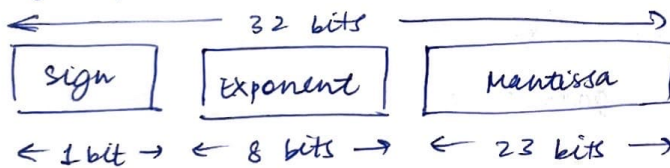 32 bits
Sign Exponent Mantissa
1 bit 8 bits 23 bits